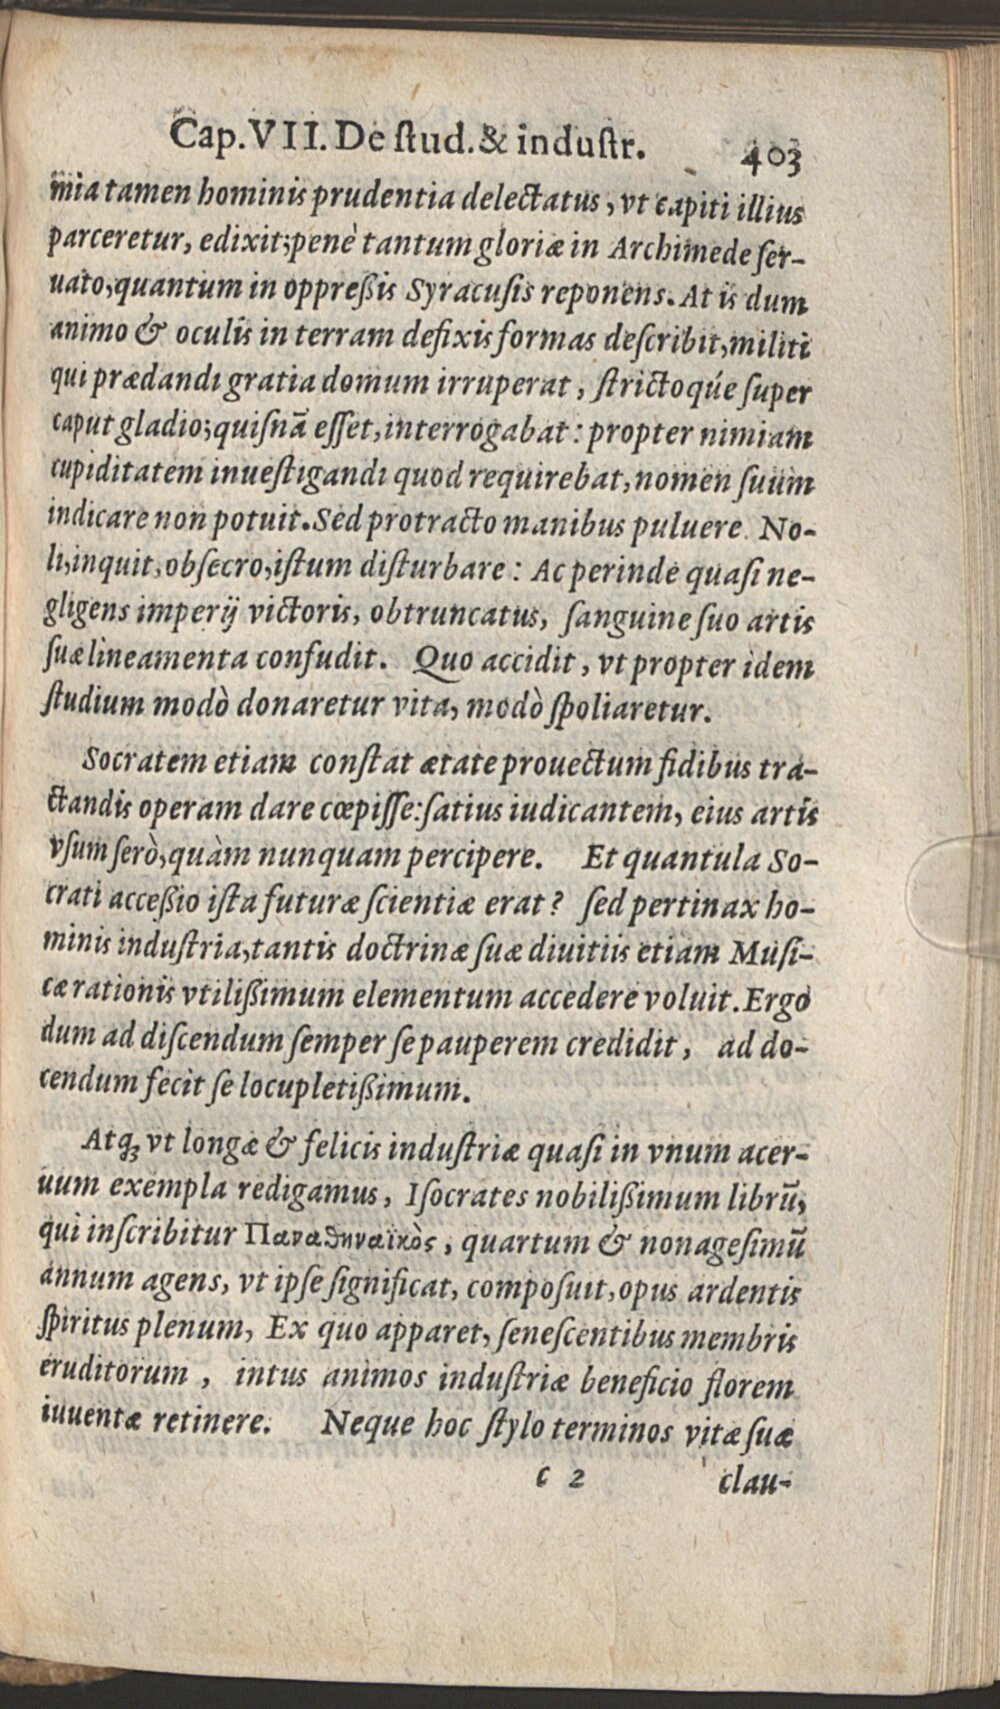 Cap. VII. De ſtud. & induſtr. 403
mia tamen hominis prudentia delectatus, vt capiti illius
parceretur, edixit; penè tantum gloriæ in Archimede ſer-
uato, quantum in oppreßis Syracuſis reponens. At is dum
animo & oculis in terram defixis formas deſcribit, militi
qui prædandi gratia domum irruperat, ſtrictoq́ue ſuper
caput gladio; quiſnã eſſet, interrogabat: propter nimiam
cupiditatem inueſtigandi quod requirebat, nomen ſuum
indicare non potuit. Sed protracto manibus puluere. No-
li, inquit, obſecro, iſtum diſturbare: Ac perinde quaſi ne-
gligens imperij victoris, obtruncatus, ſanguine ſuo artis
ſuæ lineamenta confudit. Quo accidit, vt propter idem
ſtudium modò donaretur vita, modò ſpoliaretur.
Socratem etiam conſtat ætate prouectum fidibus tra-
ctandis operam dare cœpiſſe: ſatius iudicantem, eius artis
vſum ſerò, quàm nunquam percipere. Et quantula So-
crati acceßio iſta futuræ ſcientiæ erat? ſed pertinax ho-
minis induſtria, tantis doctrinæ ſuæ diuitiis etiam Muſi-
cæ rationis vtilißimum elementum accedere voluit. Ergo
dum ad diſcendum ſemper ſe pauperem credidit, ad do-
cendum fecit ſe locupletißimum.
Atq; vt longæ & felicis induſtriæ quaſi in vnum acer-
uum exempla redigamus, Iſocrates nobilißimum librũ,
qui inſcribitur Παναθηναϊκὸς, quartum & nonageſimũ
annum agens, vt ipſe ſignificat, compoſuit, opus ardentis
ſpiritus plenum, Ex quo apparet, ſeneſcentibus membris
eruditorum, intus animos induſtriæ beneficio florem
iuuentæ retinere. Neque hoc ſtylo terminos vitæ ſuæ
c 2 clau-